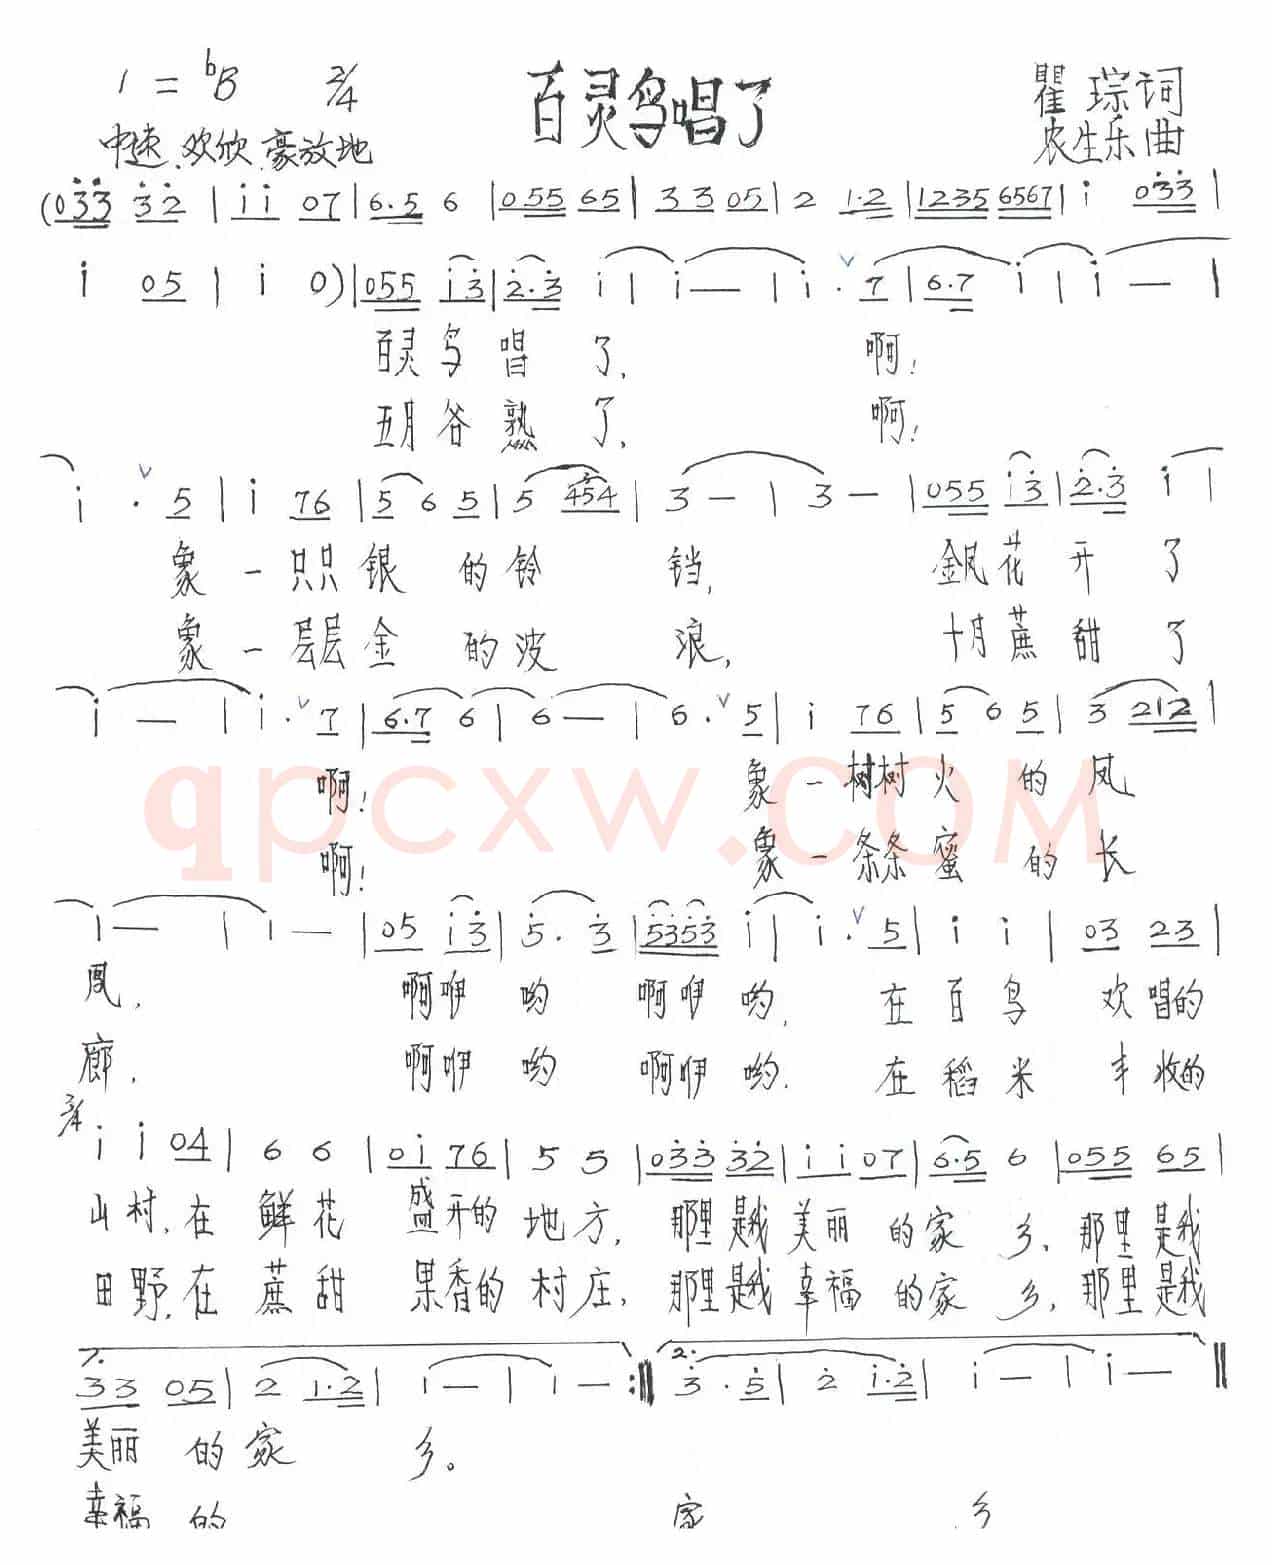 1 = ᵇB 2/4 百灵鸟唱了 瞿琮词
中速、欢欣、豪放地 农生乐曲
(033 32 | ii 07 | 6·5 6 | 055 65 | 33 05 | 2 1·2 | 1235 6567 | i 033 |
i 05 | i 0) | 055 i3 | 2·3 i | i — | i · ∨ 7 | 6·7 i | i — |
百灵鸟唱了, 啊!
五月谷熟了, 啊!
i · ∨ 5 | i 76 | 5 6 5 | 5 454 | 3 — | 3 — | 055 i3 | 2·3 i |
象一只只银的铃铛, 金凤花开了
象一层层金的波浪, 十月蔗甜了
i — | i · ∨ 7 | 6·7 6 | 6 — | 6 · ∨ 5 | i 76 | 5 6 5 | 3 212 |
啊! 象一树树火的凤
qpcxw.COM
啊! 象一条条蜜的长
1 — | 1 — | 05 i3 | 5 · 3 | 5353 i | i · ∨ 5 | i i | 03 23 |
凤, 啊咿哟 啊咿哟, 在百鸟欢唱的
廊, 啊咿哟 啊咿哟. 在稻米丰收的
3/4 i i 04 | 6 6 | 0i 76 | 5 5 | 033 32 | ii 07 | 6·5 6 | 055 65 |
山村, 在鲜花盛开的地方, 那里是我美丽的家乡, 那里是我
田野, 在蔗甜果香的村庄, 那里是我幸福的家乡, 那里是我
1. 33 05 | 2 1·2 | i — | i — :‖ 2. 3 · 5 | 2 i·2 | i — | i — ‖
美丽的家乡。
幸福的家乡